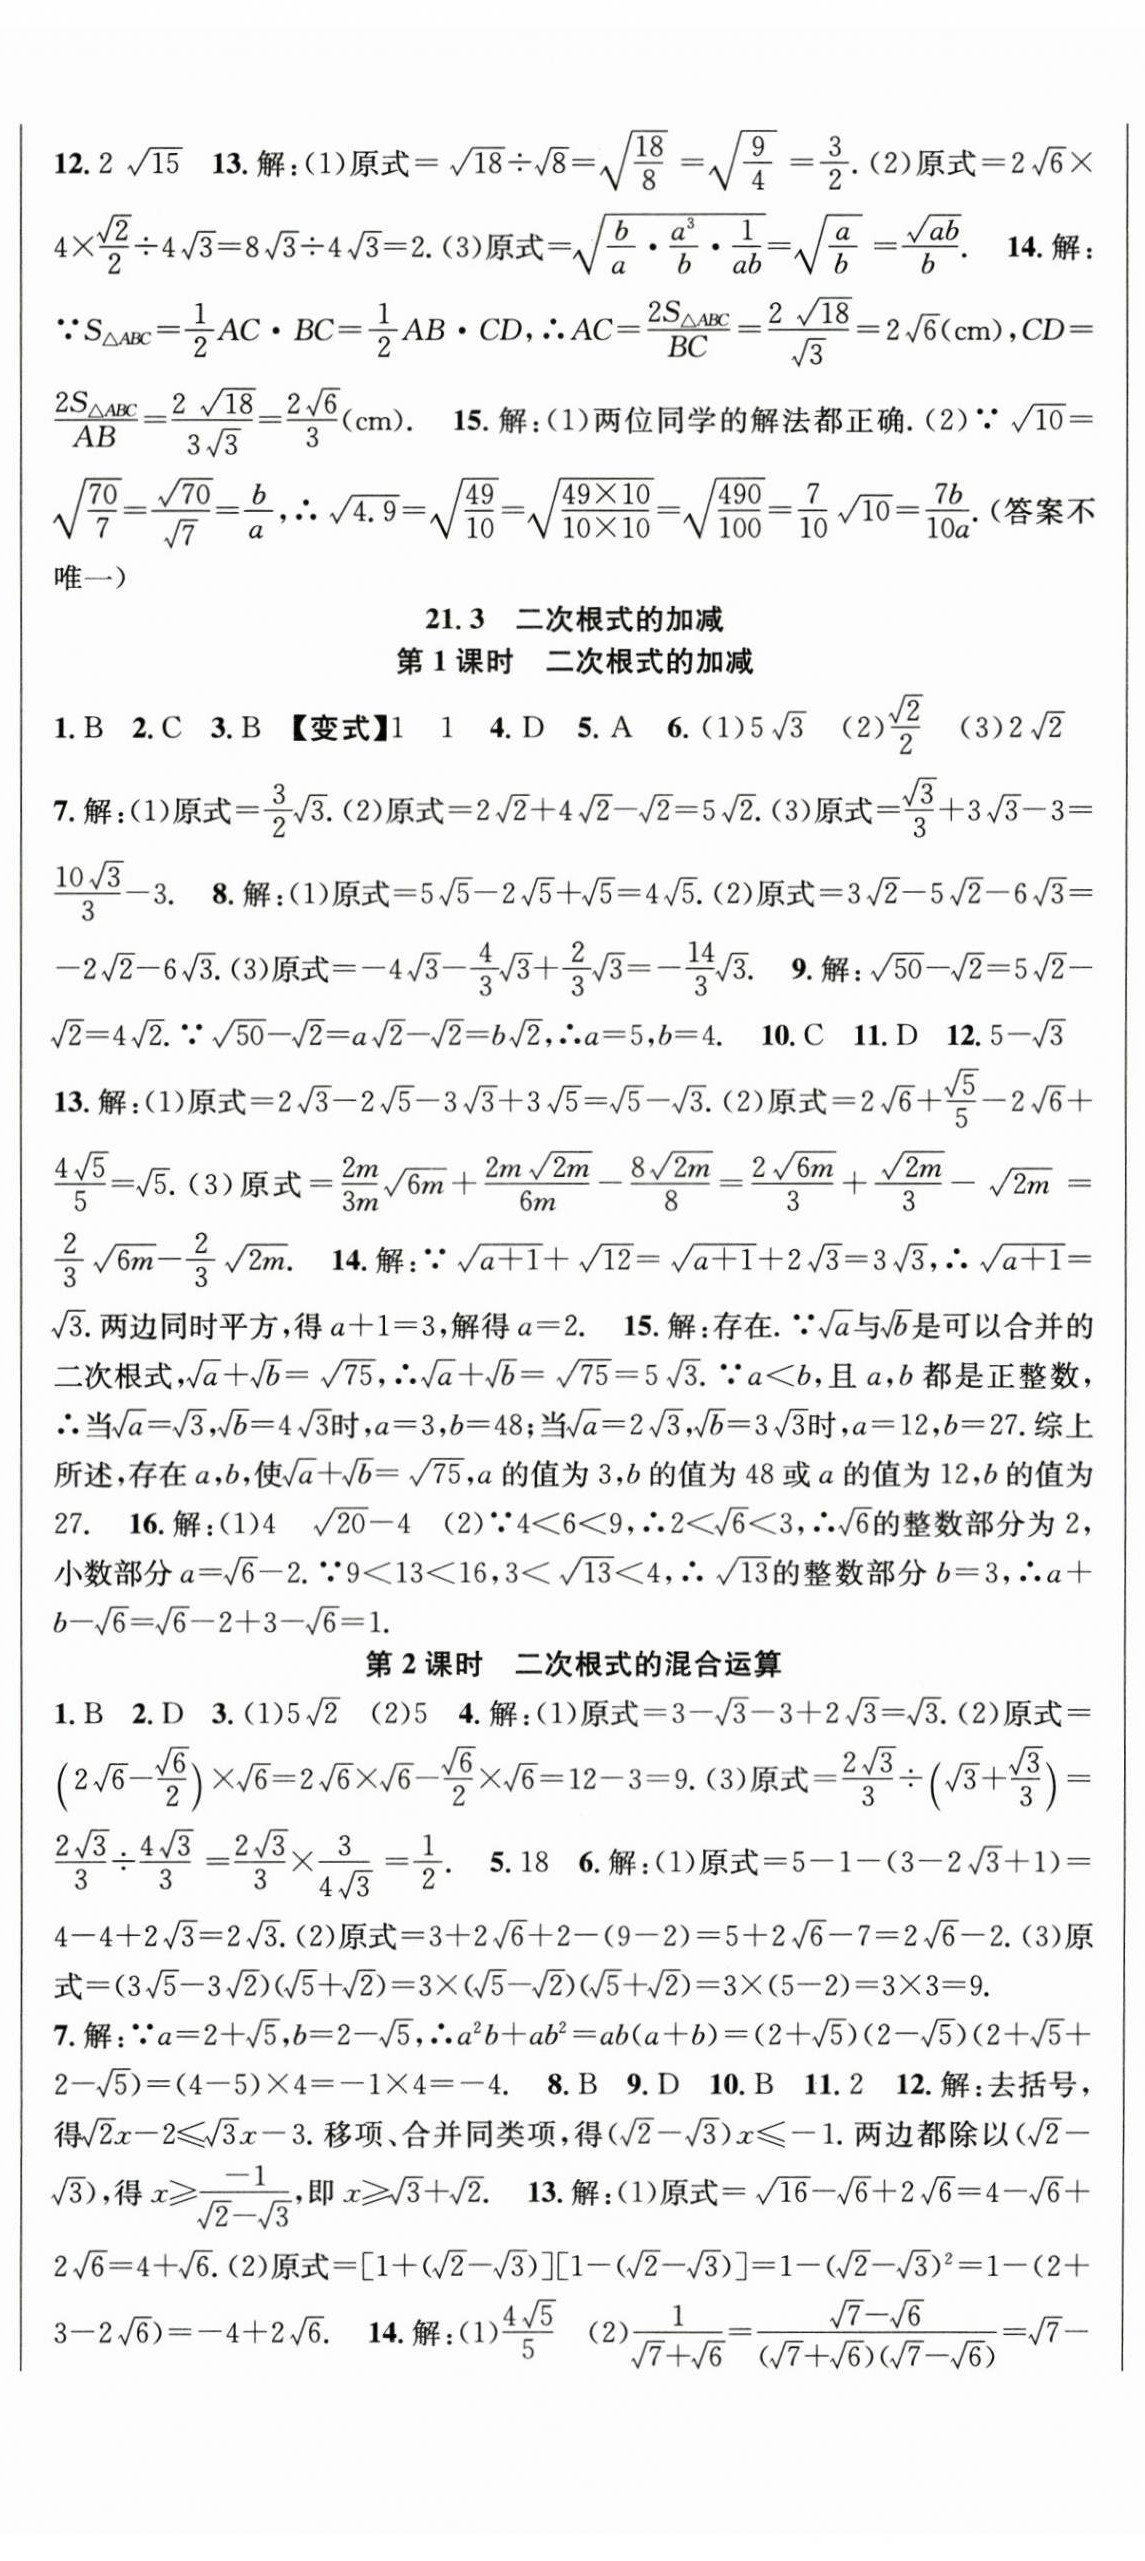 12. 2√15 13. 解:(1)原式=√18÷√8=√(18/8)=√(9/4)=3/2. (2)原式=2√6×
4×√2/2÷4√3=8√3÷4√3=2. (3)原式=√(b/a·a³/b·1/ab)=√(a/b)=√ab/b. 14. 解:
∵S△ABC=1/2AC·BC=1/2AB·CD,∴AC=2S△ABC/BC=2√18/√3=2√6(cm),CD=
2S△ABC/AB=2√18/3√3=2√6/3(cm). 15. 解:(1)两位同学的解法都正确. (2)∵√10=
√(70/7)=√70/√7=b/a,∴√4.9=√(49/10)=√(49×10/10×10)=√(490/100)=7/10√10=7b/10a. (答案不
唯一)
21.3 二次根式的加减
第1课时 二次根式的加减
1. B 2. C 3. B 【变式】1 1 4. D 5. A 6. (1)5√3 (2)√2/2 (3)2√2
7. 解:(1)原式=3/2√3. (2)原式=2√2+4√2-√2=5√2. (3)原式=√3/3+3√3-3=
10√3/3-3. 8. 解:(1)原式=5√5-2√5+√5=4√5. (2)原式=3√2-5√2-6√3=
-2√2-6√3. (3)原式=-4√3-4/3√3+2/3√3=-14/3√3. 9. 解:√50-√2=5√2-
√2=4√2. ∵√50-√2=a√2-√2=b√2,∴a=5,b=4. 10. C 11. D 12. 5-√3
13. 解:(1)原式=2√3-2√5-3√3+3√5=√5-√3. (2)原式=2√6+√5/5-2√6+
4√5/5=√5. (3)原式=2m/3m√6m+2m√2m/6m-8√2m/8=2√6m/3+√2m/3-√2m=
2/3√6m-2/3√2m. 14. 解:∵√(a+1)+√12=√(a+1)+2√3=3√3,∴√(a+1)=
√3. 两边同时平方,得a+1=3,解得a=2. 15. 解:存在. ∵√a与√b是可以合并的
二次根式,√a+√b=√75,∴√a+√b=√75=5√3. ∵a<b,且a,b都是正整数,
∴当√a=√3,√b=4√3时,a=3,b=48;当√a=2√3,√b=3√3时,a=12,b=27. 综上
所述,存在a,b,使√a+√b=√75,a的值为3,b的值为48或a的值为12,b的值为
27. 16. 解:(1)4 √20-4 (2)∵4<6<9,∴2<√6<3,∴√6的整数部分为2,
小数部分a=√6-2. ∵9<13<16,3<√13<4,∴√13的整数部分b=3,∴a+
b-√6=√6-2+3-√6=1.
第2课时 二次根式的混合运算
1. B 2. D 3. (1)5√2 (2)5 4. 解:(1)原式=3-√3-3+2√3=√3. (2)原式=
(2√6-√6/2)×√6=2√6×√6-√6/2×√6=12-3=9. (3)原式=2√3/3÷(√3+√3/3)=
2√3/3÷4√3/3=2√3/3×3/4√3=1/2. 5. 18 6. 解:(1)原式=5-1-(3-2√3+1)=
4-4+2√3=2√3. (2)原式=3+2√6+2-(9-2)=5+2√6-7=2√6-2. (3)原
式=(3√5-3√2)(√5+√2)=3×(√5-√2)(√5+√2)=3×(5-2)=3×3=9.
7. 解:∵a=2+√5,b=2-√5,∴a²b+ab²=ab(a+b)=(2+√5)(2-√5)(2+√5+
2-√5)=(4-5)×4=-1×4=-4. 8. B 9. D 10. B 11. 2 12. 解:去括号,
得√2x-2≤√3x-3. 移项、合并同类项,得(√2-√3)x≤-1. 两边都除以(√2-
√3),得x≥-1/(√2-√3),即x≥√3+√2. 13. 解:(1)原式=√16-√6+2√6=4-√6+
2√6=4+√6. (2)原式=[1+(√2-√3)][1-(√2-√3)]=1-(√2-√3)²=1-(2+
3-2√6)=-4+2√6. 14. 解:(1)4√5/5 (2)1/(√7+√6)=(√7-√6)/((√7+√6)(√7-√6))=√7-